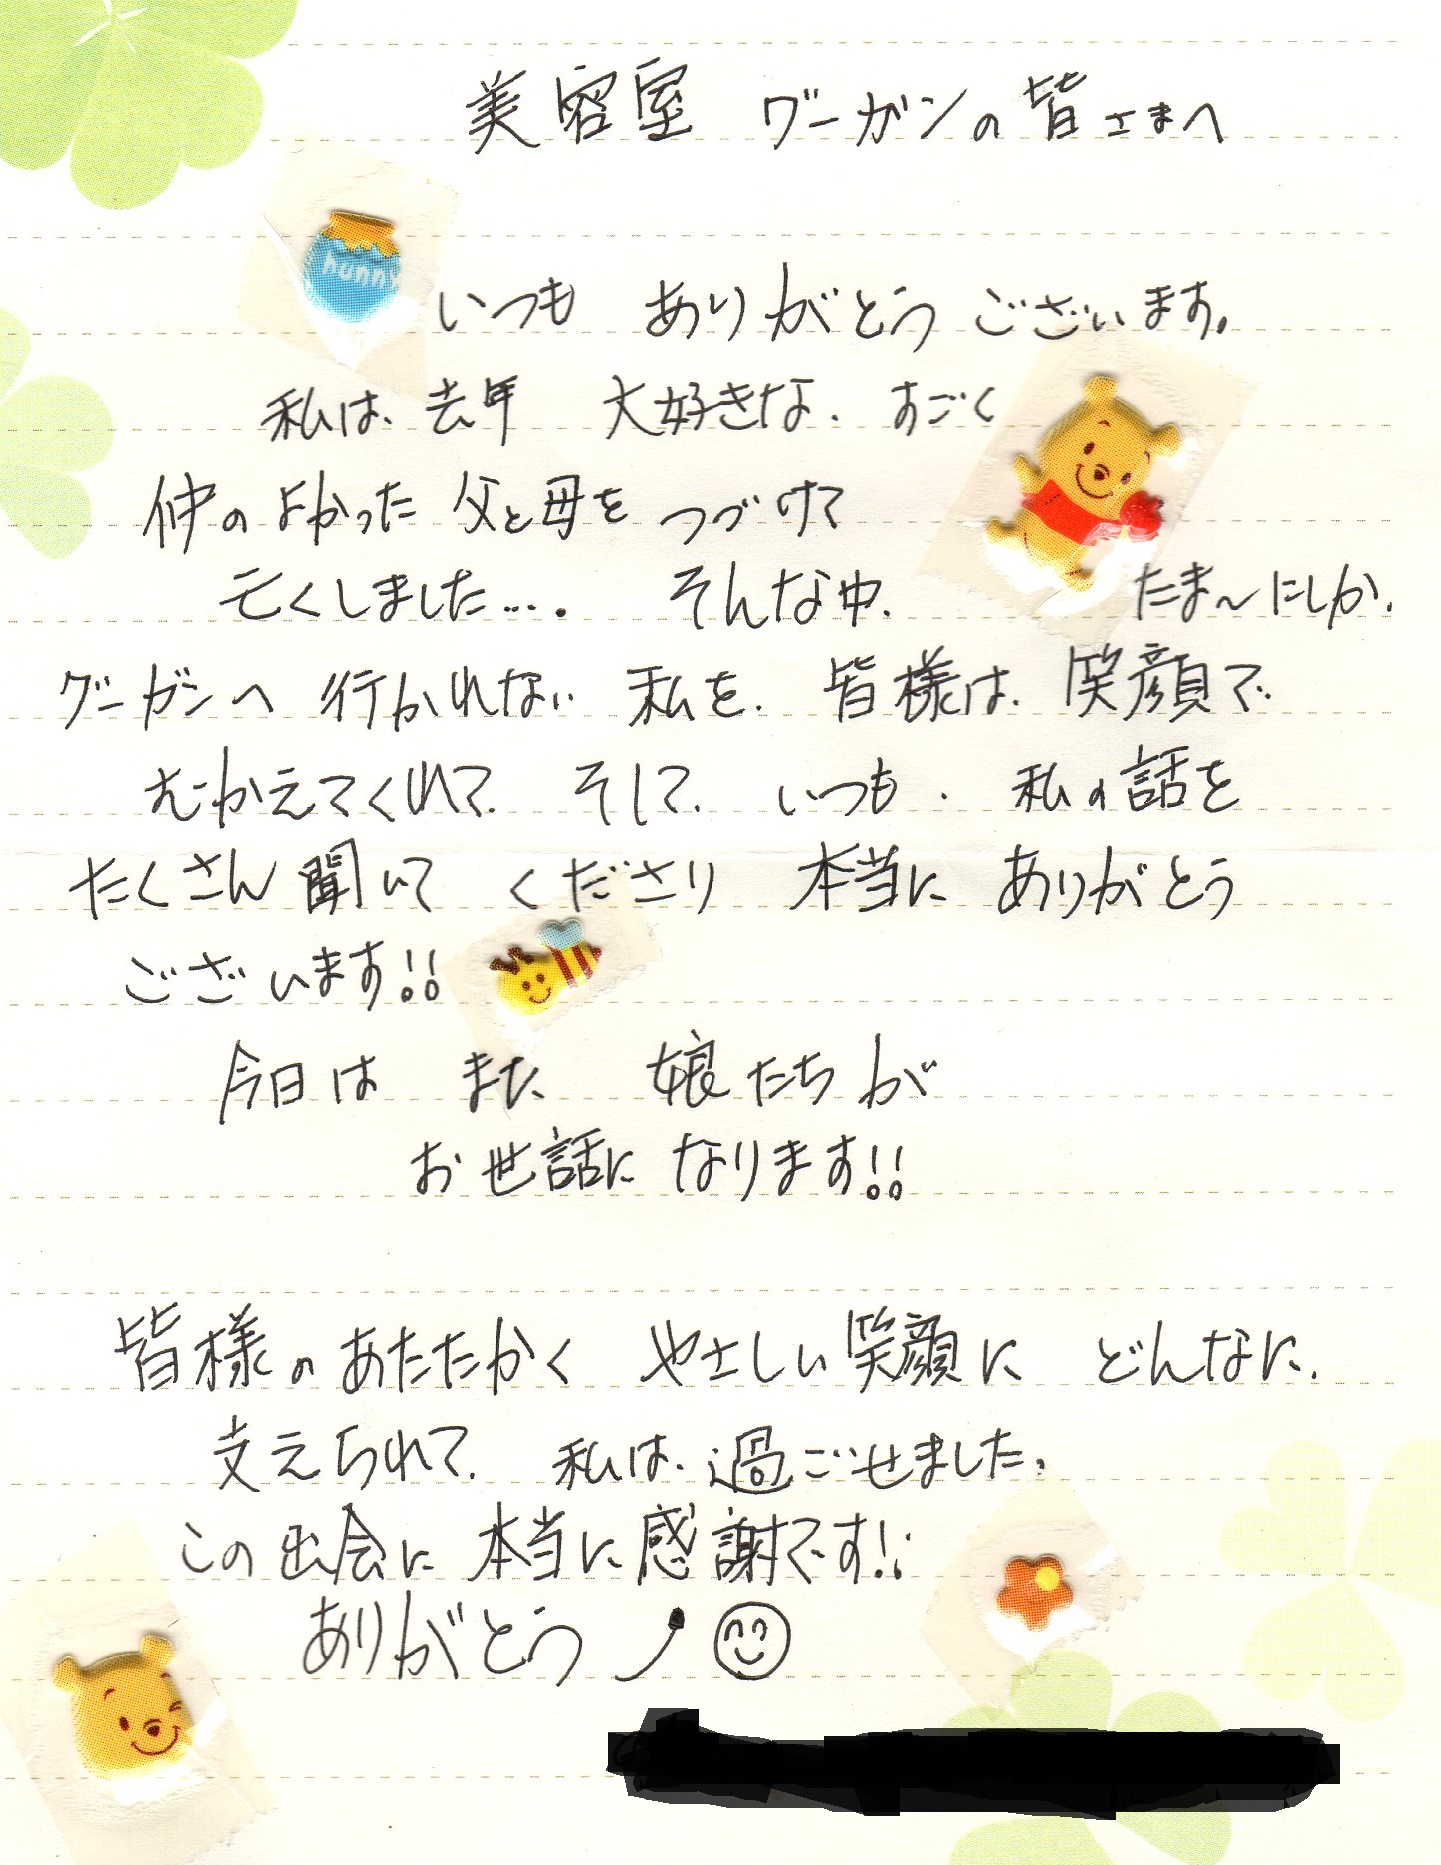 美容室 グーガンの皆さまへ
hunny
いつも ありがとう ございます。
私は、去年 大好きな、すごく
仲のよかった 父と母を つづけて
亡くしました…。 そんな中、 たま〜にしか、
グーガンへ 行かれない 私を、皆様は、笑顔で
むかえてくれて、そして、いつも、私の話を
たくさん聞いて くださり 本当に ありがとう
ございます!!
今日は また、 娘たちが
お世話に なります!!
皆様の あたたかく やさしい 笑顔に どんなに、
支えられて、私は、過ごせました。
この出会に 本当に感謝です!!
ありがとう